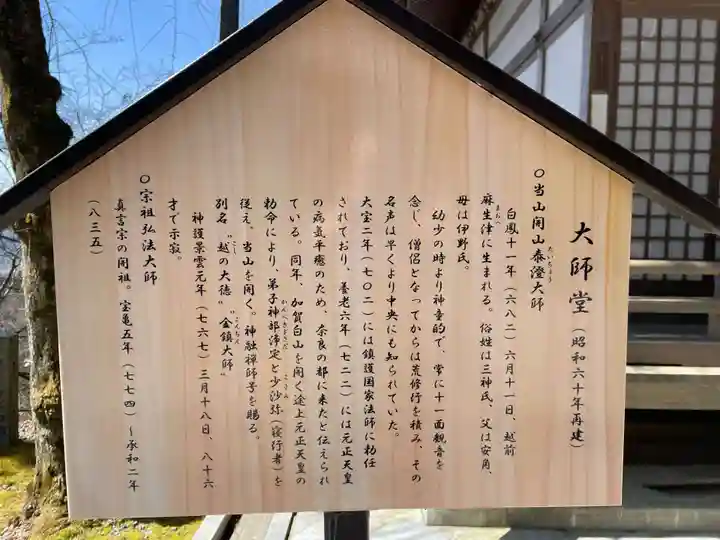 大師堂（昭和六十年再建）
○当山開山泰澄大師
たいちょう
白鳳十一年（六八二）六月十一日、越前
麻生津に生まれる。俗姓は三神氏、父は安角、
まあへ
母は伊野氏。
幼少の時より神童的で、常に十一面観音を
念じ、僧侶となってからは荒修行を積み、その
名声は早くより中央にも知られていた。
大宝二年（七〇二）には鎮護国家法師に勅任
されており、養老六年（七二二）には元正天皇
の病気平癒のため、奈良の都に来たと伝えられ
ている。同年、加賀白山を開く途上元正天皇の
勅命により、弟子神部浄定と少沙弥（寝行者）を
かんべきどさだ　こさみ
従え、当山を開く。神融禅師号を賜る。
別名〝越の大徳〟〝金鎮大師〟
こし　こんちく
神護景雲元年（七六七）三月十八日、八十六
才で示寂。
○宗祖弘法大師
真言宗の開祖。宝亀五年（七七四）～承和二年
（八三五）